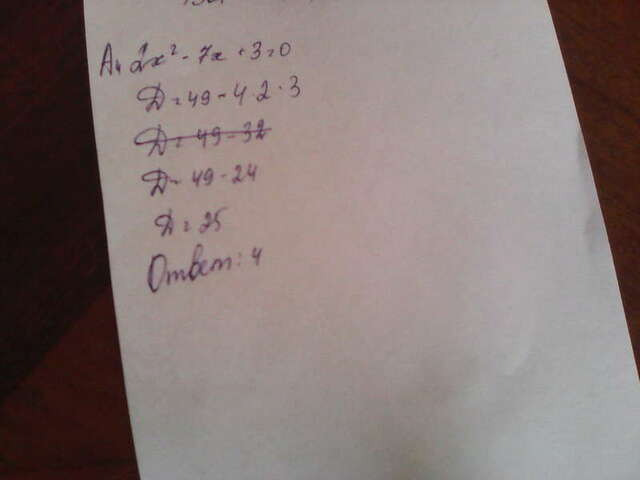 A4 2x² - 7x + 3 = 0
D = 49 - 4·2·3
D = 49 - 32
D = 49 - 24
D = 25
Ответ: 4